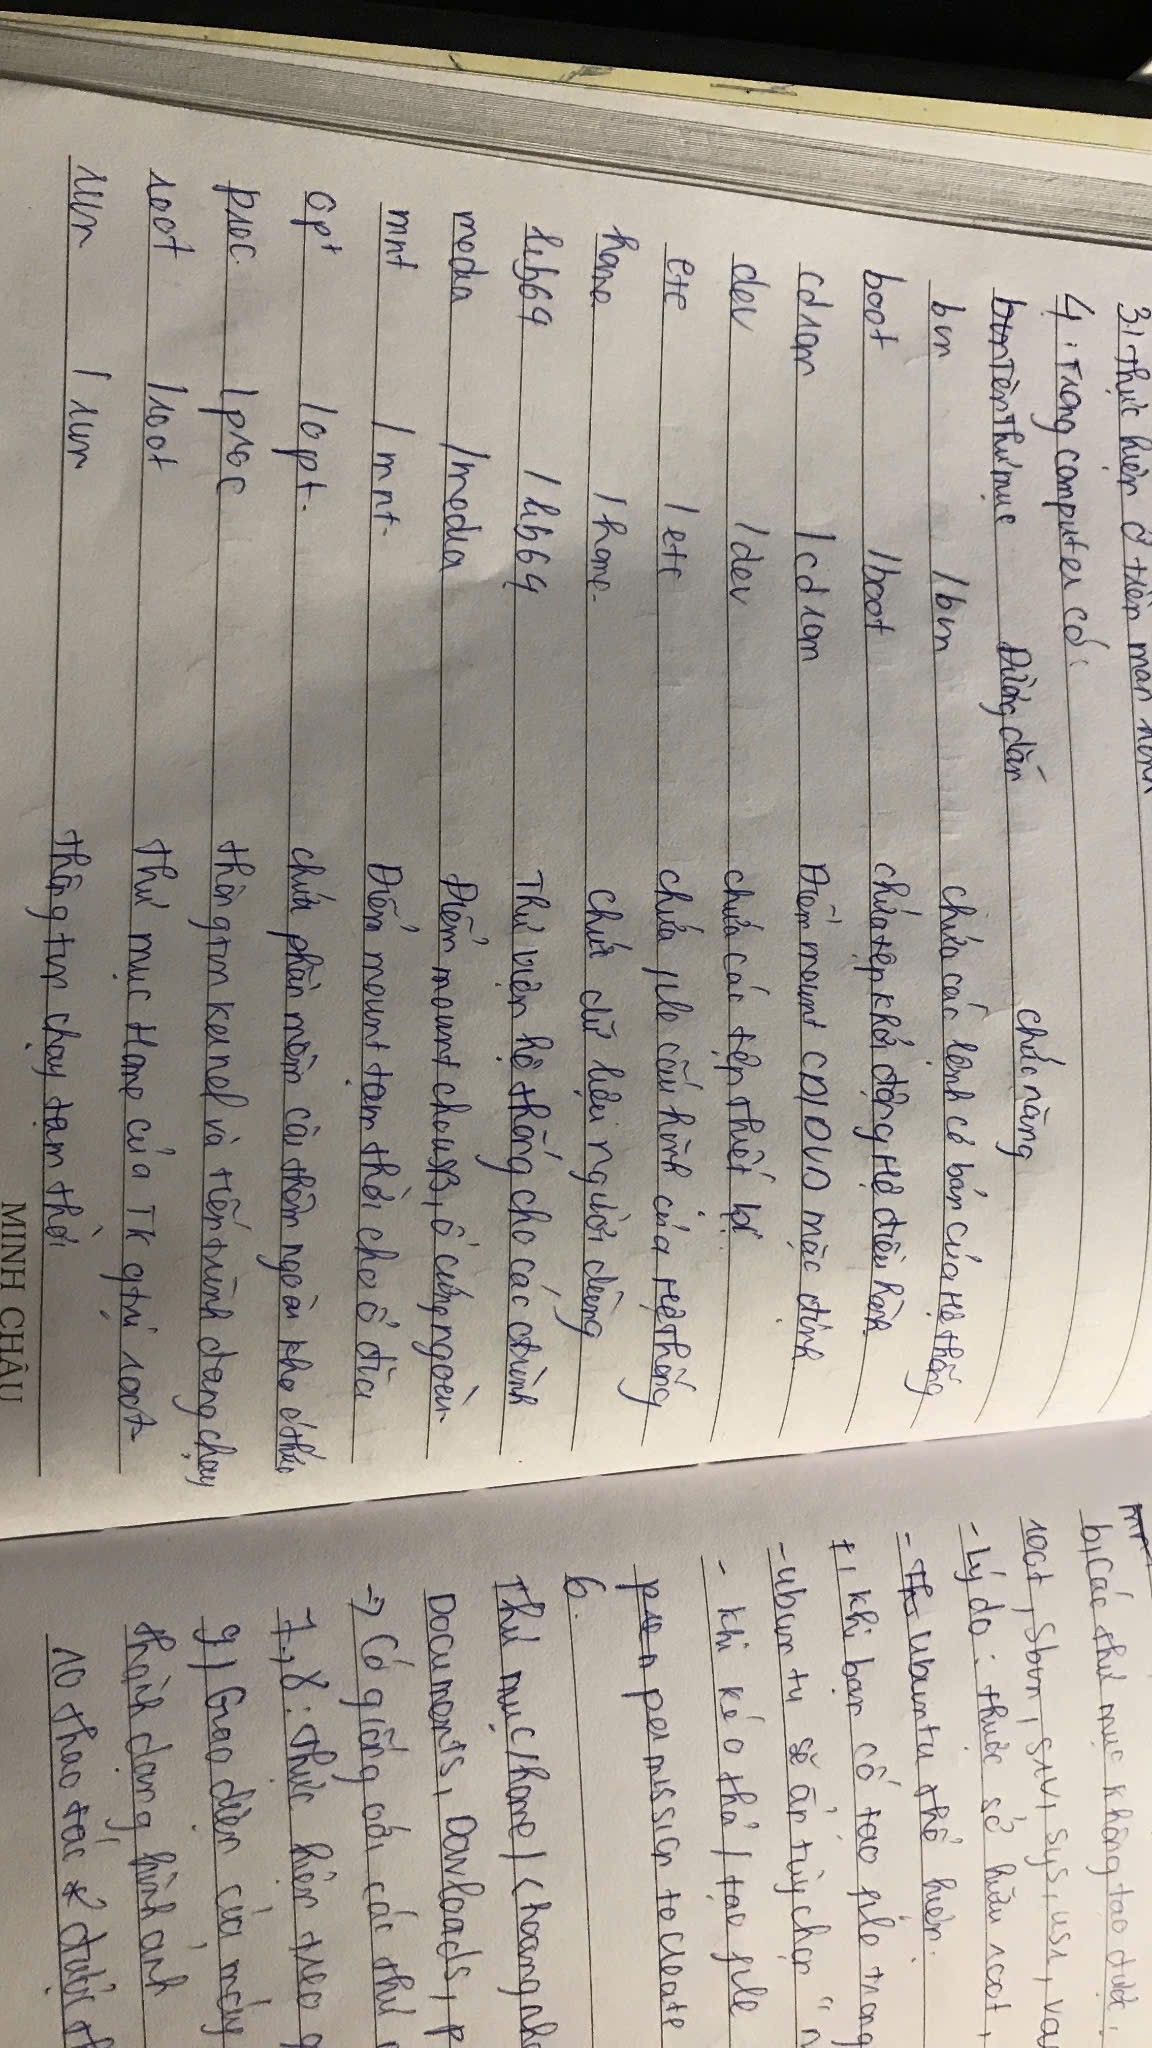 3, Thực hiện ở trên màn hình
4, Trong computer có:
Tên thư mục Đường dẫn chức năng
bin /bin chứa các lệnh cơ bản của hệ thống
boot /boot chứa tệp khởi động hệ điều hành
cdrom /cdrom Điểm mount CD/DVD mặc định
dev /dev chứa các tệp thiết bị
etc /etc chứa file cấu hình của hệ thống
home /home chứa dữ liệu người dùng
lib64 /lib64 Thư viện hệ thống cho các ctrình
media /media Điểm mount cho USB, ổ cứng ngoài
mnt /mnt Điểm mount tạm thời cho ổ đĩa
opt /opt chứa phần mềm cài thêm ngoài kho
proc /proc thông tin kernel và tiến trình đang chạy
root /root Thư mục Home của TK qtrị root
run /run thông tin chạy tạm thời
MINH CHÂU
b, Các thư mục không tạo được:
root, sbin, srv, sys, usr, va
- Lý do: thuộc sở hữu root,
- ubuntu thể hiện:
+, khi bạn cố tạo file trong
- ubuntu sẽ ẩn tùy chọn "n
- khi kéo thả / tạo file
permission to create
6.
Thư mục /home/
Documents, Downloads, p
-> Có giống với các thư
7, 8: Thực hiện treo
9, Giao diện của máy
thành dạng hình ảnh
10 thao tác dưới